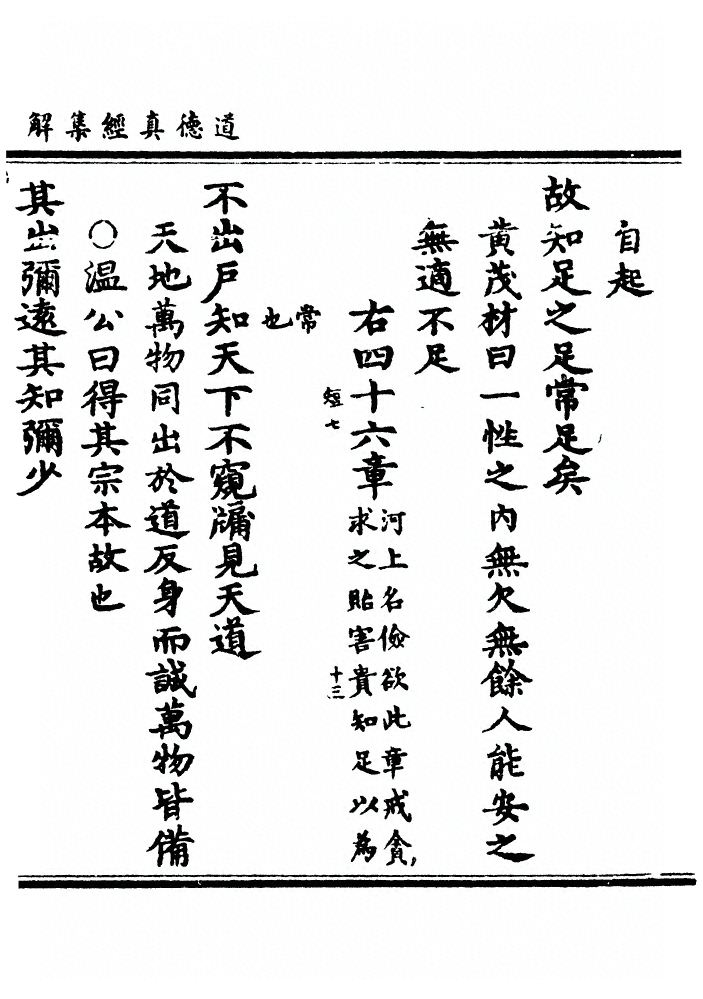 道德真經集解
自起
故知足之足常足矣
黄茂材曰一性之內無欠無餘人能安之
無適不足
右四十六章
河上名儉欲此章戒貪
求之貽害貴知足以為
常
也
短七
十三
不出戶知天下不窺牖見天道
天地萬物同出於道反身而誠萬物皆備
〇温公曰得其宗本故也
其出彌遠其知彌少